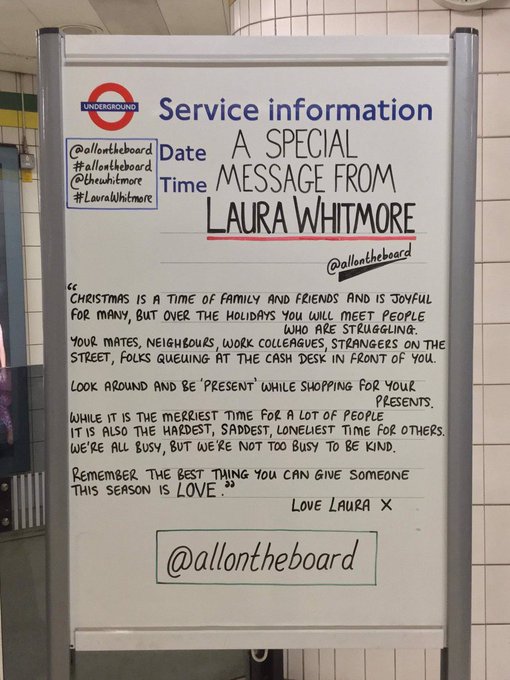 UNDERGROUND
Service information
@allontheboard
#allontheboard
@thewhitmore
#LauraWhitmore
Date A SPECIAL
Time MESSAGE FROM
LAURA WHITMORE
@allontheboard
"CHRISTMAS IS A TIME OF FAMILY AND FRIENDS AND IS JOYFUL
FOR MANY, BUT OVER THE HOLIDAYS YOU WILL MEET PEOPLE
WHO ARE STRUGGLING.
YOUR MATES, NEIGHBOURS, WORK COLLEAGUES, STRANGERS ON THE
STREET, FOLKS QUEUING AT THE CASH DESK IN FRONT OF YOU.
LOOK AROUND AND BE 'PRESENT' WHILE SHOPPING FOR YOUR
PRESENTS.
WHILE IT IS THE MERRIEST TIME FOR A LOT OF PEOPLE
IT IS ALSO THE HARDEST, SADDEST, LONELIEST TIME FOR OTHERS.
WE'RE ALL BUSY, BUT WE'RE NOT TOO BUSY TO BE KIND.
REMEMBER THE BEST THING YOU CAN GIVE SOMEONE
THIS SEASON IS LOVE."
LOVE LAURA X
@allontheboard